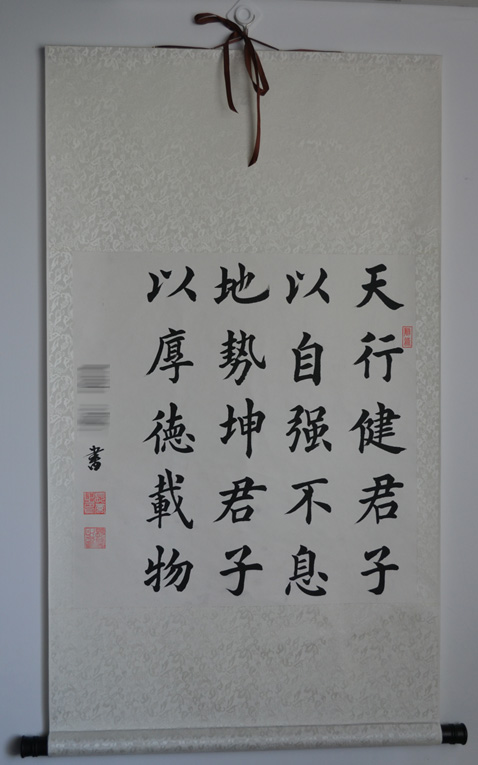 天行健君子
以自强不息
地勢坤君子
以厚德載物
書